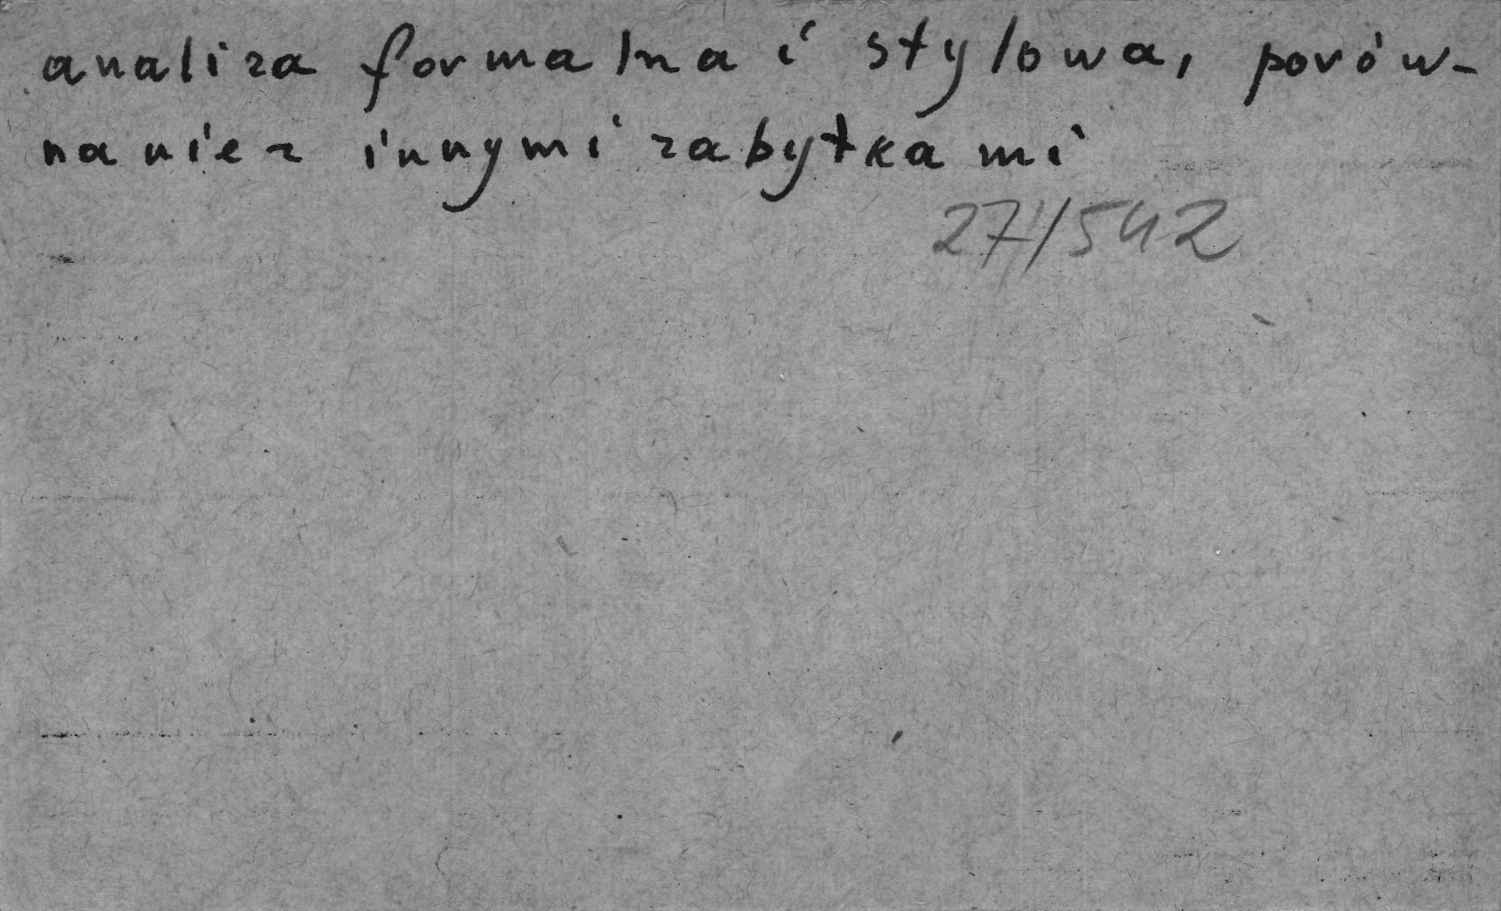 analiza formalna i stylowa, porów-
nanie z innymi zabytkami
271/542